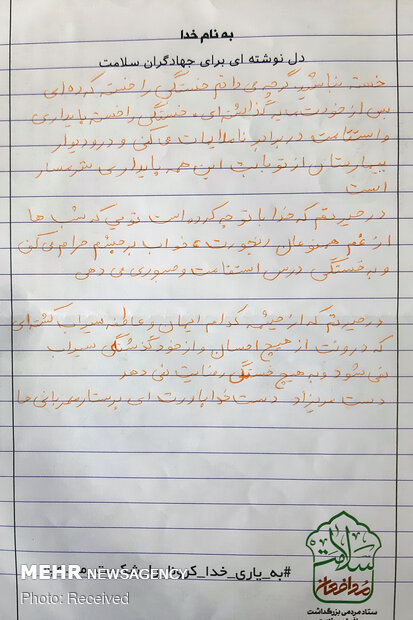 به نام خدا
دل نوشته ای برای جهادگران سلامت
خسته نباشید گرچه می دانم خستگی را خسته کرده ای
بس از خودت مایه گذاشته ای، خستگی را خسته پایداری
و استقامت در برابر ناملایمات می کنی و در و دیوار
بیمارستان از تو بابت این همه پایداری شرمسار
است
در حیرتم که خدا با تو چه کرده است تویی که شب ها
از غم همنوعان رنجورت، خواب بر چشم حرام می کنی
و به خستگی درس استقامت و صبوری می دهی
در حیرتم که از چشمه کدام ایمان و عاطفه سیراب گشته ای
که درونت از هیچ احسان و از خود گذشتگی سیراب
نمی شود و به هیچ خستگی رضایت نمی دهد
دست مریزاد دست خدا یاورت ای پرستار مهربانی ها
#به_یاری_خدا_کرونا
MEHR NEWSAGENCY
Photo: Received
سلامت
مدافعان
ستاد مردمی بزرگداشت